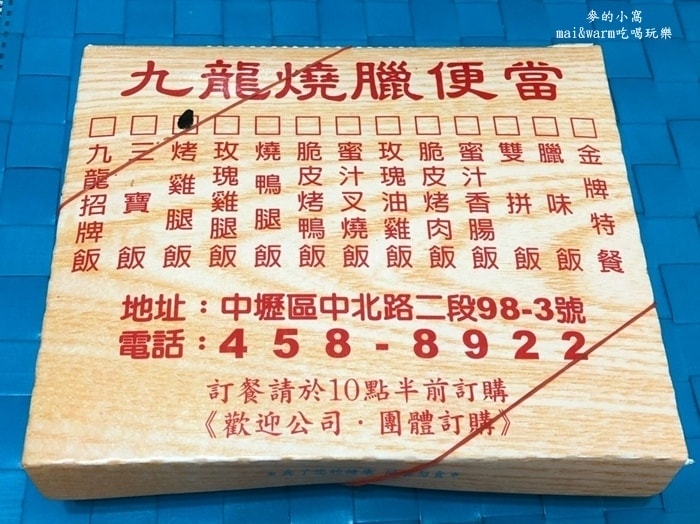 麥的小窩
mai&warm吃喝玩樂
九龍燒臘便當
九龍招牌飯
三寶飯
烤雞腿飯
玫瑰雞腿飯
燒鴨腿飯
脆皮烤鴨飯
蜜汁叉燒飯
玫瑰油雞飯
脆皮烤肉飯
蜜汁香腸飯
雙拼飯
臘味飯
金牌特餐
地址：中壢區中北路二段98-3號
電話：458-8922
訂餐請於10點半前訂購
《歡迎公司．團體訂購》